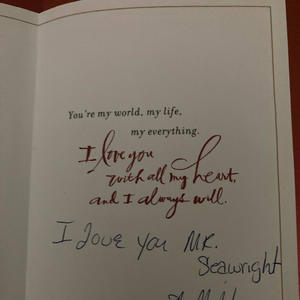 You're my world, my life,
my everything.
I love you
with all my heart,
and I always will.
I Love You MR.
Seawright